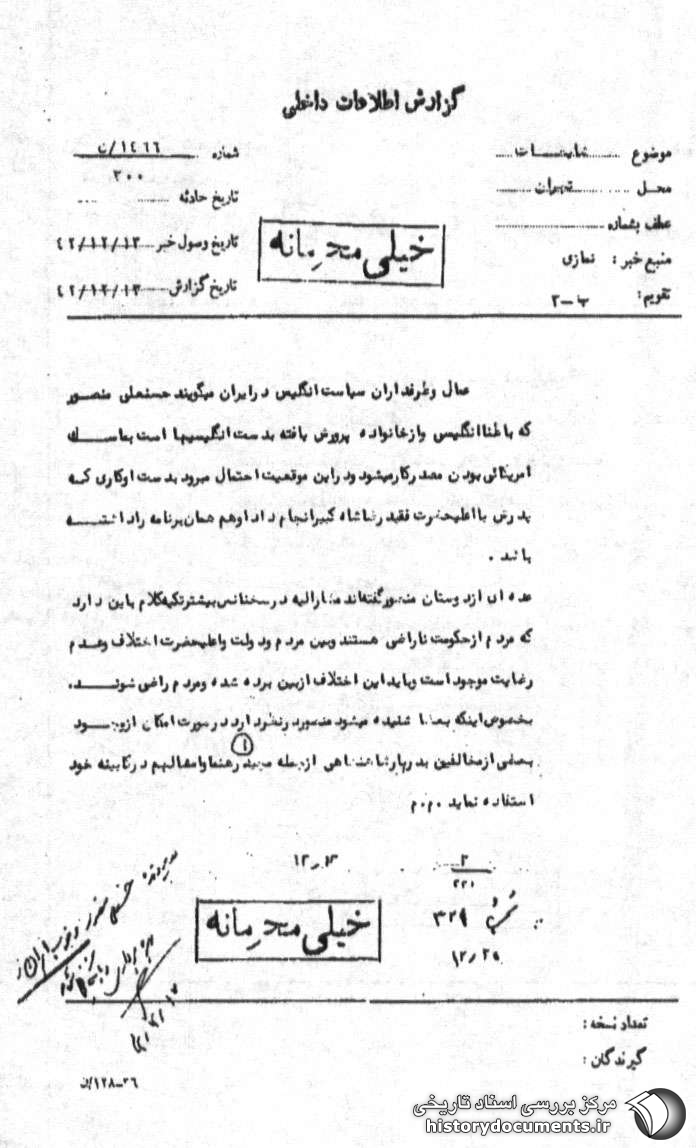 گزارش اطلاعات داخلی
موضوع شایعات
محل تهران
عطف بشماره
منبع خبر : نمازی
تقویم : ب-۲
شماره ۱۴۶۶/ن
۳۰۰
تاریخ حادثه
تاریخ وصول خبر ۴۲/۱۲/۱۳
تاریخ گزارش ۴۲/۱۲/۱۳
خیلی محرمانه
عمال وطرفداران سیاست انگلیس درایران میگویند حسنعلی منصور
که باطناانگلیسی وازخانواده پرورش یافته بدست انگلیسیها است بماسک
امریکائی بودن مصدرکارمیشود ودراین موقعیت احتمال میرود بدست اوکاری که
پدرش بااعلیحضرت فقید رضاشاه کبیرانجام داد اوهم همان برنامه راداشته
باشد .
عده ای ازدوستان منصورگفته‌اند مشارالیه درسخنانس بیشترتکیه‌کلام باین دارد
که مردم ازحکومت ناراضی هستند وبین مردم ودولت واعلیحضرت اختلاف وعدم
رضایت موجود است وباید این اختلاف ازبین برده شده ومردم راضی شوند.
بخصوص اینکه بعضا شنیده میشود منصور درنظر دارد درصورت امکان ازوجود
بعضی ازمخالفین بدربارشاهنشاهی ازجمله مجید رهنما وامثالهم درکابینه خود
۱
استفاده نماید .م.م
۲
۲۲۱
۱۲/۱۳
۳۲۹
۱۲/۲۹
خیلی محرمانه
تعداد نسخه :
گیرندگان :
۱۲۸-۳۶/ن
مرکز بررسی اسناد تاریخی
historydocuments.ir